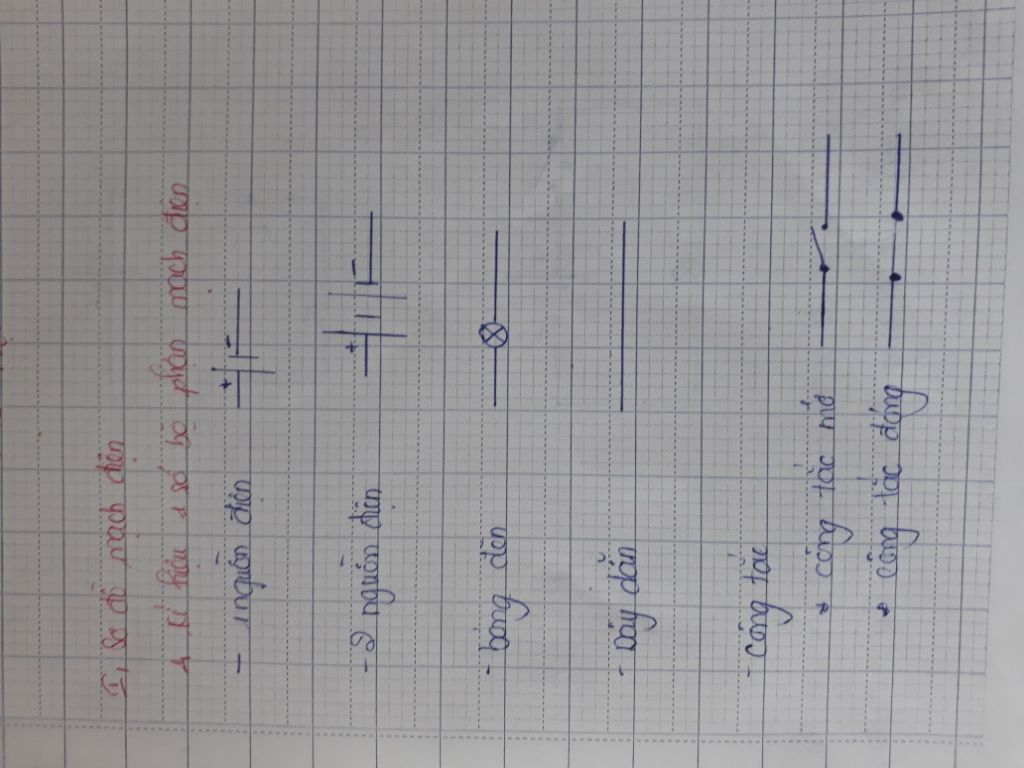 I, Sơ đồ mạch điện
1 Kí hiệu 1 số bộ phận mạch điện
- 1 nguồn điện
+ -
- 2 nguồn điện
+ -
- bóng đèn
- Dây dẫn
- Công tắc
* công tắc mở
* công tắc đóng